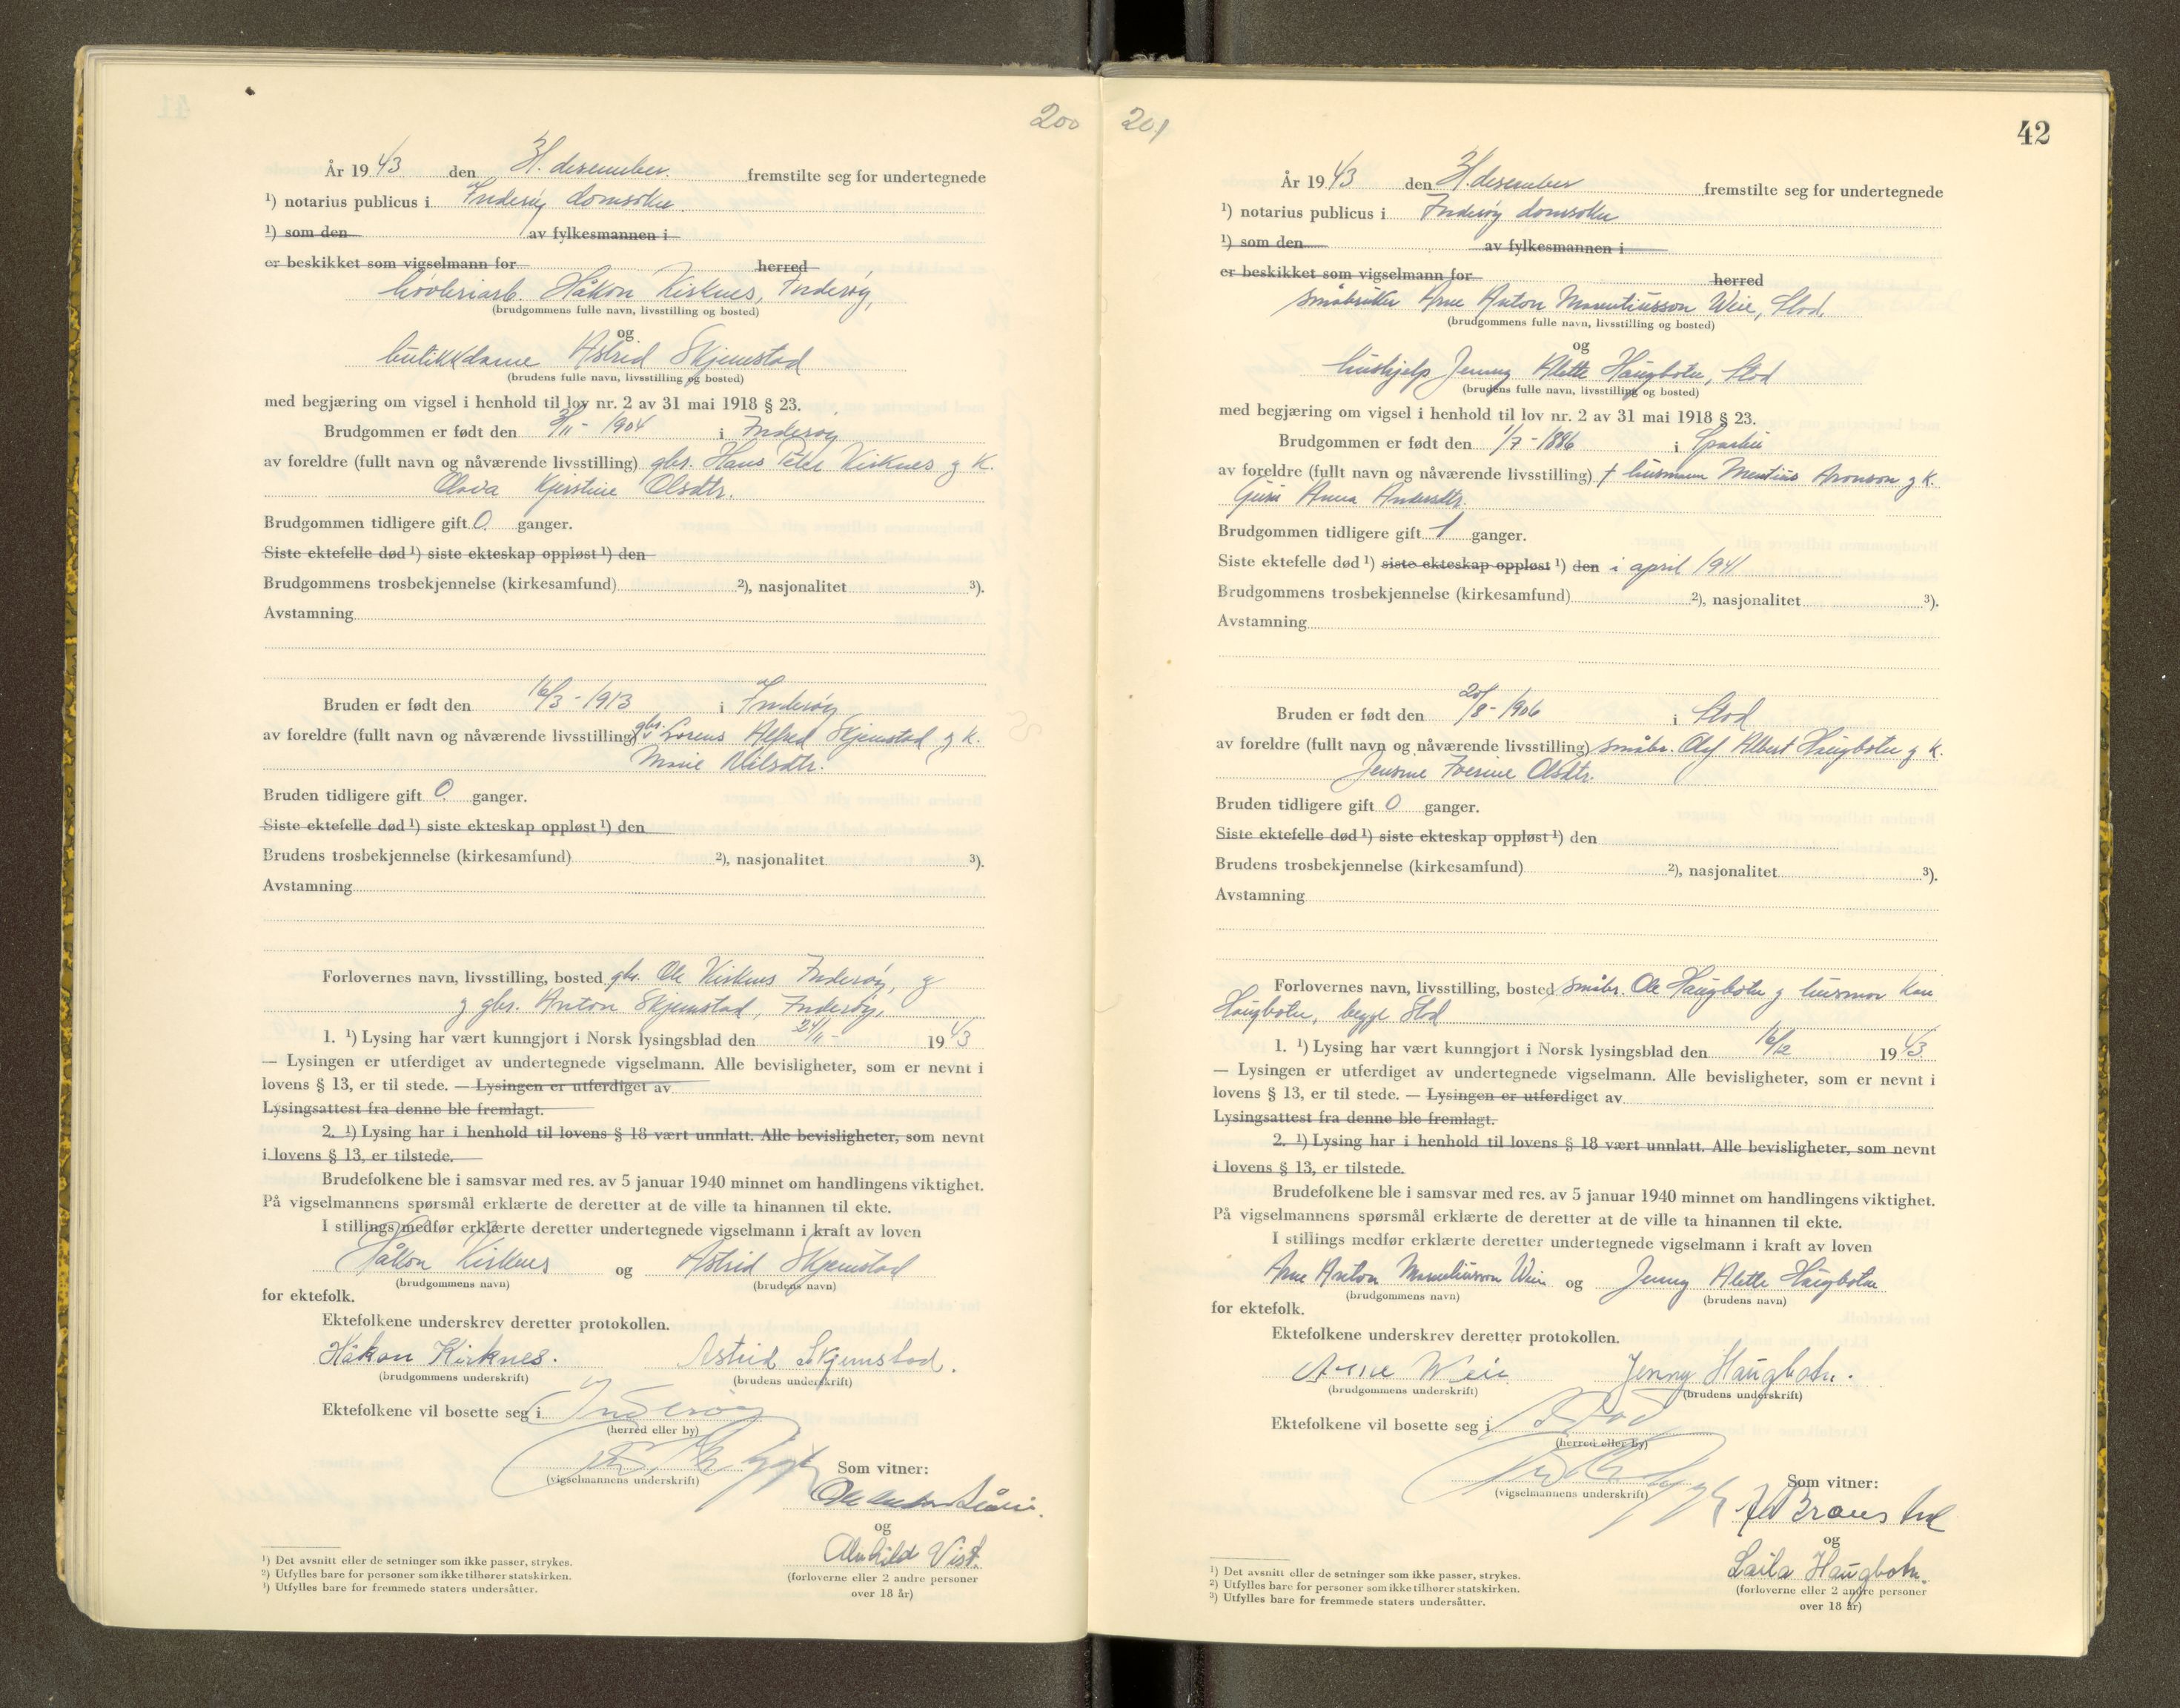 200
År 1943 den 31. desember. fremstilte seg for undertegnede
¹) notarius publicus i Inderøy domsokn
¹) som den av fylkesmannen i
er beskikket som vigselmann for herred
høvleriarb. Håkon Kirknes, Inderøy,
(brudgommens fulle navn, livsstilling og bosted)
og
butikkdame Astrid Skjemstad
(brudens fulle navn, livsstilling og bosted)
med begjæring om vigsel i henhold til lov nr. 2 av 31 mai 1918 § 23.
Brudgommen er født den /11 - 1904 i Inderøy
av foreldre (fullt navn og nåværende livsstilling) gbr. Hans Peter Kirknes g K.
Olava Kjerstine Olsdtr.
Brudgommen tidligere gift 0 ganger.
Siste ektefelle død ¹) siste ekteskap oppløst ¹) den
Brudgommens trosbekjennelse (kirkesamfund) ²), nasjonalitet ³).
Avstamning
Bruden er født den 16/3 - 1913 i Inderøy
av foreldre (fullt navn og nåværende livsstilling) gbr. Lorens Alfred Skjemstad g K.
Marie Nilsdtr.
Bruden tidligere gift 0 ganger.
Siste ektefelle død ¹) siste ekteskap oppløst ¹) den
Brudens trosbekjennelse (kirkesamfund) ²), nasjonalitet ³).
Avstamning
Forlovernes navn, livsstilling, bosted gbr. Ole Kirknes Inderøy, g
g gbr. Anton Skjemstad, Inderøy,
1. ¹) Lysing har vært kunngjort i Norsk lysingsblad den 24/11 - 1943
— Lysingen er utferdiget av undertegnede vigselmann. Alle bevisligheter, som er nevnt i
lovens § 13, er til stede. — Lysingen er utferdiget av
Lysingsattest fra denne ble fremlagt.
2. ¹) Lysing har i henhold til lovens § 18 vært unnlatt. Alle bevisligheter, som nevnt
i lovens § 13, er tilstede.
Brudefolkene ble i samsvar med res. av 5 januar 1940 minnet om handlingens viktighet.
På vigselmannens spørsmål erklærte de deretter at de ville ta hinannen til ekte.
I stillings medfør erklærte deretter undertegnede vigselmann i kraft av loven
Håkon Kirknes og Astrid Skjemstad
(brudgommens navn) (brudens navn)
for ektefolk.
Ektefolkene underskrev deretter protokollen.
Håkon Kirknes. Astrid Skjemstad.
(brudgommens underskrift) (brudens underskrift)
Ektefolkene vil bosette seg i Inderøy
(herred eller by)
(vigselmannens underskrift) Som vitner:
og
Alvhild Vist.
(forloverne eller 2 andre personer
over 18 år)
¹) Det avsnitt eller de setninger som ikke passer, strykes.
²) Utfylles bare for personer som ikke tilhører statskirken.
³) Utfylles bare for fremmede staters undersåtter.
201
42
År 1943 den 31. desember fremstilte seg for undertegnede
¹) notarius publicus i Inderøy domsokn
¹) som den av fylkesmannen i
er beskikket som vigselmann for herred
småbruker Arne Anton Mauritiusson Weie, Stod,
(brudgommens fulle navn, livsstilling og bosted)
og
hushjelp Jenny Alette Haugbotn, Stod
(brudens fulle navn, livsstilling og bosted)
med begjæring om vigsel i henhold til lov nr. 2 av 31 mai 1918 § 23.
Brudgommen er født den 1/7 - 1886 i Sparbu
av foreldre (fullt navn og nåværende livsstilling) † husmann Aronson g K.
Anna Andersdtr.
Brudgommen tidligere gift 1 ganger.
Siste ektefelle død ¹) siste ekteskap oppløst ¹) den i april 1941
Brudgommens trosbekjennelse (kirkesamfund) ²), nasjonalitet ³).
Avstamning
Bruden er født den 20/8 - 1906 i Stod
av foreldre (fullt navn og nåværende livsstilling) småbr. Olaf Albert Haugbotn g K.
Iverine Olsdtr.
Bruden tidligere gift 0 ganger.
Siste ektefelle død ¹) siste ekteskap oppløst ¹) den
Brudens trosbekjennelse (kirkesamfund) ²), nasjonalitet ³).
Avstamning
Forlovernes navn, livsstilling, bosted småbr. Ole Haugbotn g husmor
Haugbotn, begge Stod
1. ¹) Lysing har vært kunngjort i Norsk lysingsblad den 16/12 1943
— Lysingen er utferdiget av undertegnede vigselmann. Alle bevisligheter, som er nevnt i
lovens § 13, er til stede. — Lysingen er utferdiget av
Lysingsattest fra denne ble fremlagt.
2. ¹) Lysing har i henhold til lovens § 18 vært unnlatt. Alle bevisligheter, som nevnt
i lovens § 13, er tilstede.
Brudefolkene ble i samsvar med res. av 5 januar 1940 minnet om handlingens viktighet.
På vigselmannens spørsmål erklærte de deretter at de ville ta hinannen til ekte.
I stillings medfør erklærte deretter undertegnede vigselmann i kraft av loven
Arne Anton Mauritiusson Weie og Jenny Alette Haugbotn
(brudgommens navn) (brudens navn)
for ektefolk.
Ektefolkene underskrev deretter protokollen.
Arne Weie Jenny Haugbotn.
(brudgommens underskrift) (brudens underskrift)
Ektefolkene vil bosette seg i Stod
(herred eller by)
(vigselmannens underskrift) Som vitner:
og
Laila Haugbotn.
(forloverne eller 2 andre personer
over 18 år)
¹) Det avsnitt eller de setninger som ikke passer, strykes.
²) Utfylles bare for personer som ikke tilhører statskirken.
³) Utfylles bare for fremmede staters undersåtter.